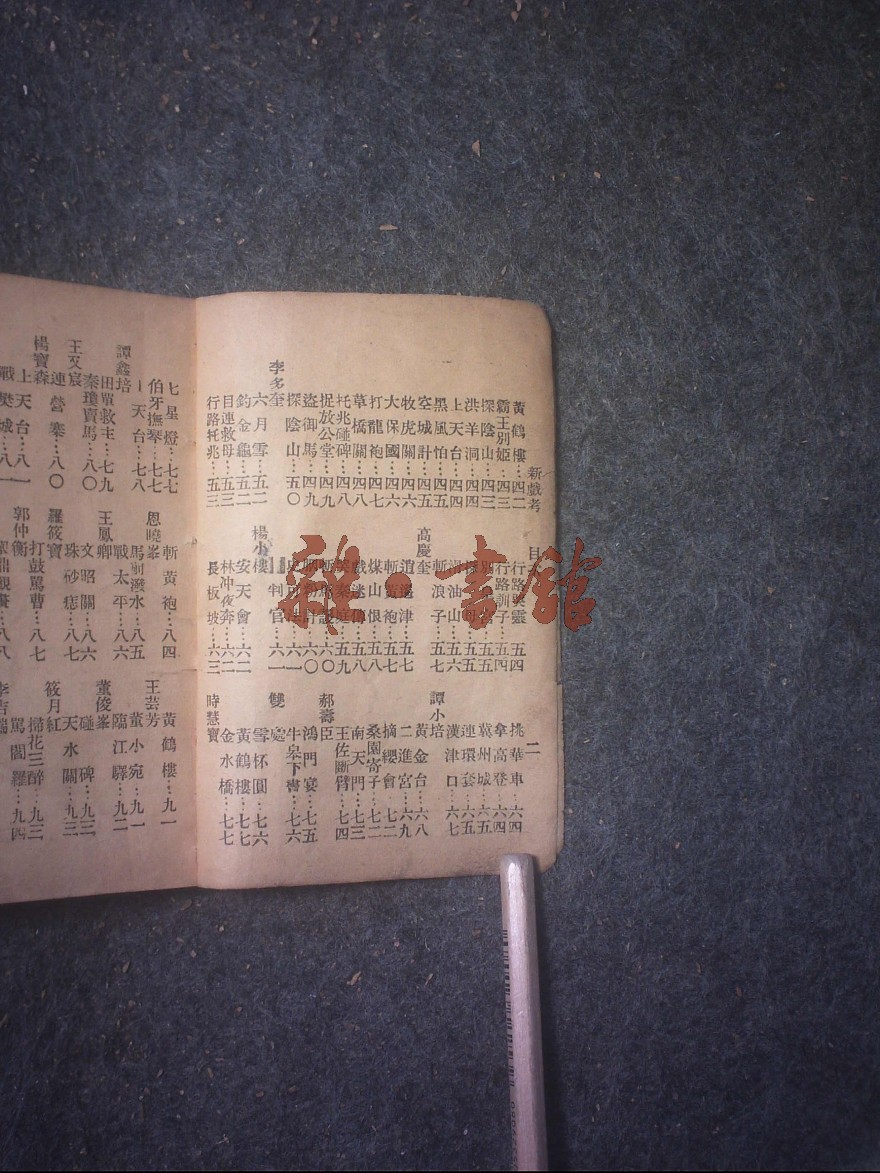 新戲考 目錄 二
黃鶴樓⋯四二
霸王別姬⋯四三
探陰山⋯四三
洪羊洞⋯四四
上天台⋯四四
黑風帕⋯四五
空城計⋯四五
牧虎關⋯四六
大保國⋯四六
打龍袍⋯四七
草橋關⋯四八
托兆碰碑⋯四八
捉放公堂⋯四九
盜御馬⋯四九
探陰山⋯五〇
李多奎
六月雪⋯五二
釣金龜⋯五二
目連救母⋯五三
行路托兆⋯五三
行路哭靈⋯五四
行路訓子⋯五四
五五
五五
滑油山⋯五六
斬浪子⋯五七
高慶奎
逍遙津⋯五七
斬黃袍⋯五七
煤山恨⋯五八
戲迷傳⋯五八
哭秦庭⋯五九
六〇
六〇
史可法⋯六一
判官⋯六一
楊小樓
安天會⋯六二
林冲夜奔⋯六二
長板坡⋯六三
挑華車⋯六四
拿高登⋯六四
冀州城⋯六五
連環套⋯六五
漢津口⋯六七
譚小培
黃金台⋯六八
二進宮⋯六九
摘纓會⋯七二
桑園寄子⋯七二
南天門⋯七三
王佐斷臂⋯七四
郝壽臣
鴻門宴⋯七五
牛皋下書⋯七六
雙處
雪杯圓⋯七六
黃鶴樓⋯七七
金水橋⋯七七
時慧寶
七星燈⋯七七
伯牙撫琴⋯七七
上天台⋯七八
譚鑫培
田單救主⋯七九
秦瓊賣馬⋯八〇
王又宸
連營寨⋯八〇
楊寶森
上天台⋯八一
戰樊城⋯八一
斬黃袍⋯八四
恩曉峯
馬前潑水⋯八五
戰太平⋯八六
王鳳卿
文昭關⋯八六
珠砂痣⋯八七
羅筱寶
打鼓罵曹⋯八七
郭仲衡
八八
黃鶴樓⋯九一
王芸芳
董小宛⋯九一
臨江驛⋯九二
董俊峯
碰碑⋯九三
天水關⋯九三
筱月紅
掃花三醉⋯九三
罵閻羅⋯九四
李吉瑞
雜·書館